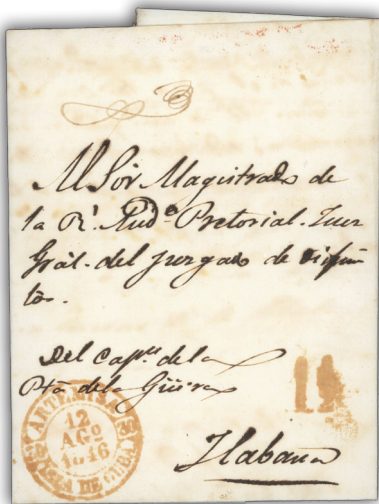 Al Sor Magistrado de
la Rl. Auda Pretorial. Juez
Gral. del juzgado de difun
tos.
Del Capn. de la
Pta de la Güira
ARTEMISA
12
AGO
1846
ISLA DE CUBA
Habana